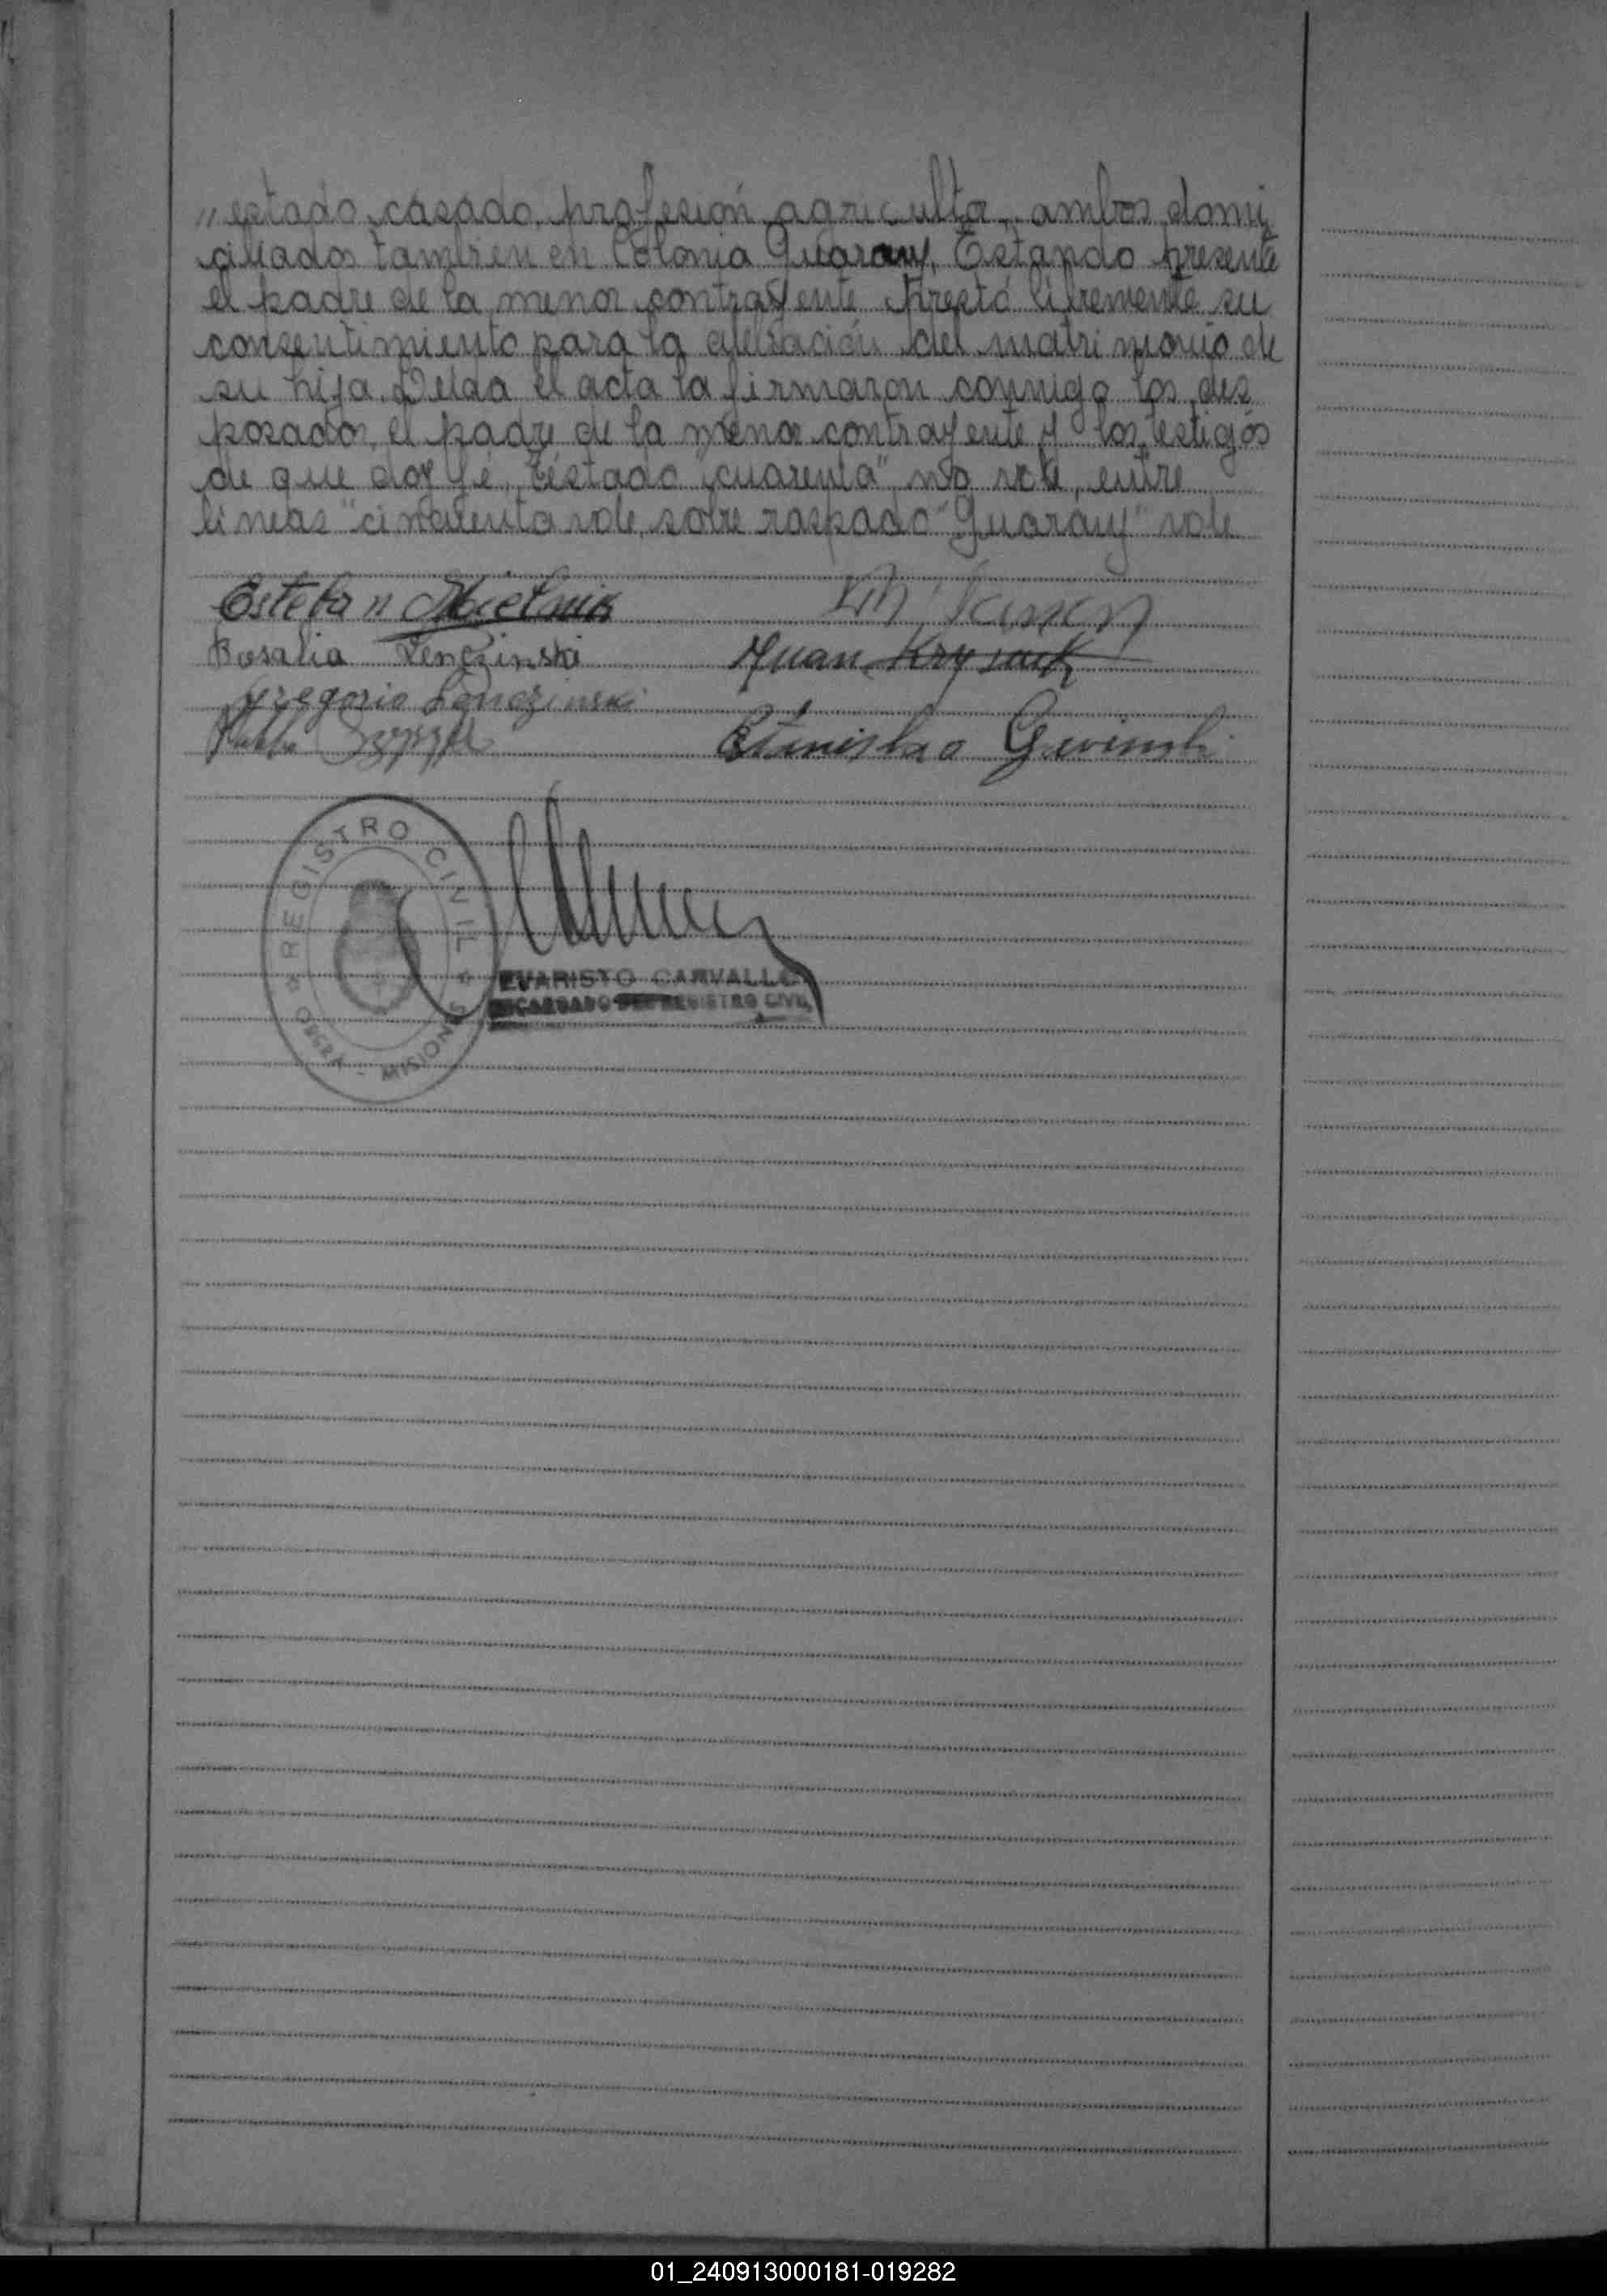 " estado casado, profesión agricultor, ambos domi
ciliados también en Colonia Guarany. Estando presente
el padre de la menor contrayente prestó libremente su
consentimiento para la celebración del matrimonio de
su hija. Leida el acta la firmaron conmigo los des
posados, el padre de la menor contrayente y los testigos
de que doy fé. Testado "cuarenta" no vale, entre
lineas "cincuenta vale, sobre raspado "Guarany" vale
Esteban Mielnik
Rosalia Lenczinski
Juan
Gregorio Lenczinski
Stanislao
REGISTRO CIVIL
OBERA - MISIONES
EVARISTO CARVALLO
ENCARGADO DEL REGISTRO CIVIL
01_240913000181-019282